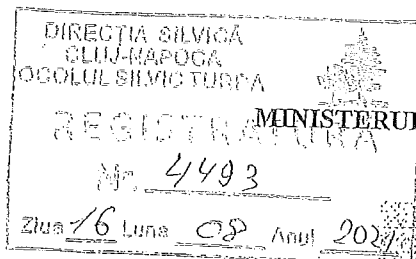 DIRECȚIA SILVICĂ
CLUJ-NAPOCA
OCOLUL SILVIC TURDA
REGISTRATURA
MINISTERUL
Nr. 4493
Ziua 16 Luna 08 Anul